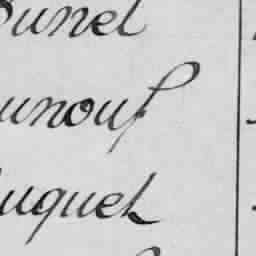 unel
unouf
uquet